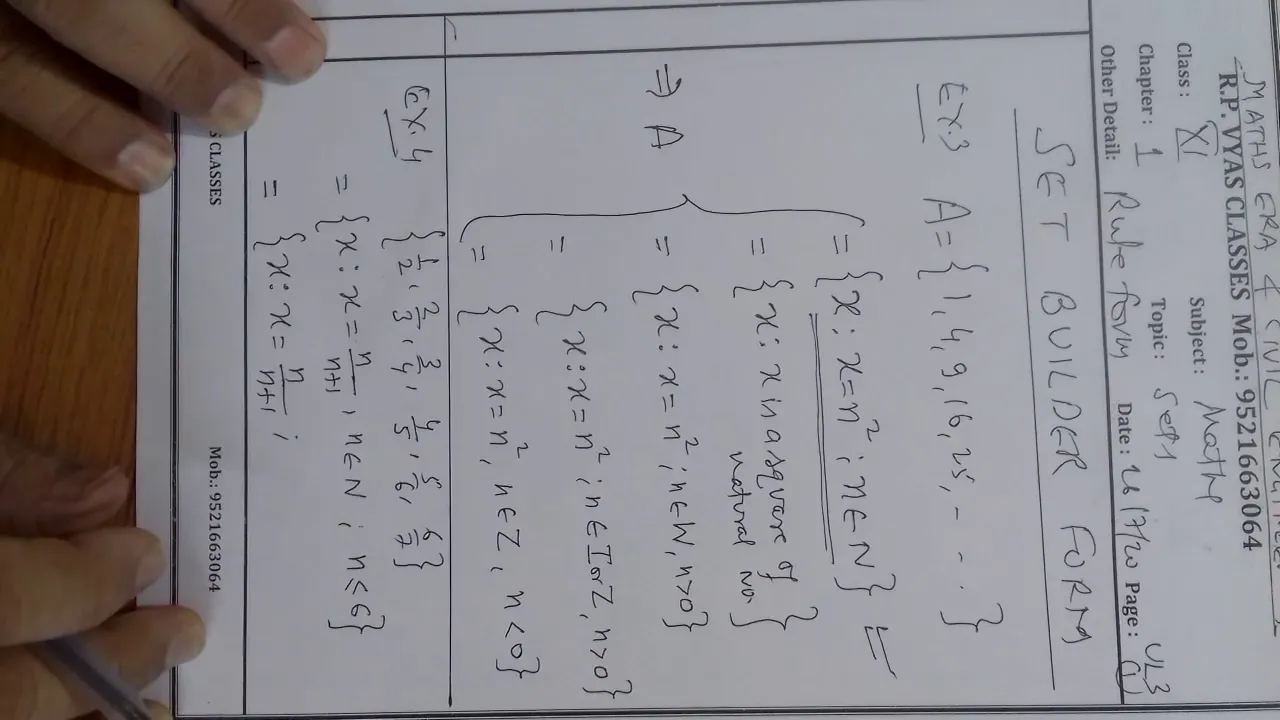 MATHS ERA 4 CIVIL
R.P. VYAS CLASSES Mob.: 9521663064
Class : XI Subject : Maths
Chapter : 1 Topic : Sets
Other Detail: Rule form Date : 26/7/20 Page : VL3 (1)
SET BUILDER FORM
EX.3 A = {1, 4, 9, 16, 25, - - . }
= {x : x = n² ; n ∈ N}
= {x : x is a square of natural no.}
⇒ A = {x : x = n² ; n ∈ W, n>0}
= {x : x = n² ; n ∈ I or Z, n>0}
= {x : x = n², n ∈ Z, n<0}
EX.4 {1/2, 2/3, 3/4, 4/5, 5/6, 6/7}
= {x : x = n/n+1, n ∈ N ; n ≤ 6}
= {x : x = n/n+1 ;
S CLASSES Mob.: 9521663064